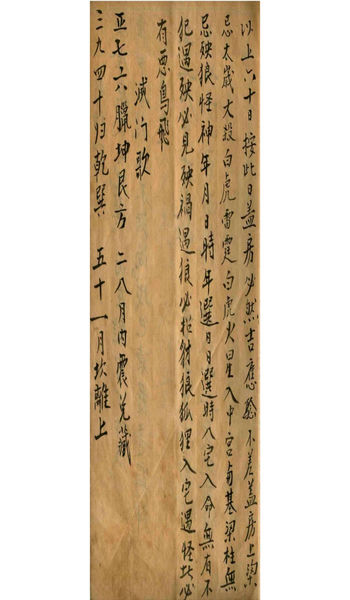 以上六十日按此日盖房必然吉應驗不差盖房上梁
忌太歲大殺白虎雷霆白虎火星入中宫向基梁柱無
忌殃狼怪神年月日時年選日日選時入宅入命無有不
犯遇殃必見殃禍遇狼必招豺狼狐狸入宅遇怪此必
有惡鳥飛
滅门歌
正七六臘坤艮方 二八月内震兑藏
三九四十归乾巽 五十一月坎離上